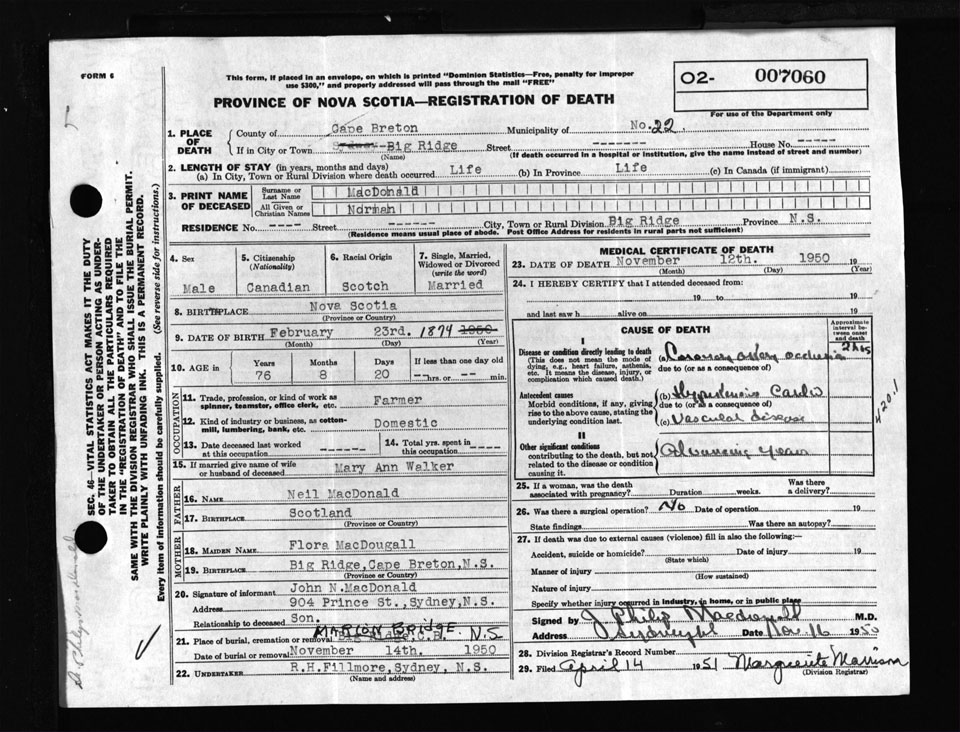 FORM 6
This form, if placed in an envelope, on which is printed "Dominion Statistics—Free, penalty for improper
use $300," and properly addressed will pass through the mail "FREE"
PROVINCE OF NOVA SCOTIA—REGISTRATION OF DEATH
O2- 007060
For use of the Department only
1. PLACE OF DEATH
County of Cape Breton Municipality of No. 22
If in City or Town Big Ridge Street ------- House No. -----
(Name) (If death occurred in a hospital or institution, give the name instead of street and number)
2. LENGTH OF STAY (in years, months and days)
(a) In City, Town or Rural Division where death occurred Life (b) In Province Life (c) In Canada (if immigrant)
3. PRINT NAME OF DECEASED
Surname or Last Name MacDonald
All Given or Christian Names Norman
RESIDENCE No. ---- Street ------ City, Town or Rural Division Big Ridge Province N.S.
(Residence means usual place of abode. Post Office Address for residents in rural parts not sufficient)
4. Sex Male
5. Citizenship (Nationality) Canadian
6. Racial Origin Scotch
7. Single, Married, Widowed or Divorced (write the word) Married
8. BIRTHPLACE Nova Scotia
(Province or Country)
9. DATE OF BIRTH February 23rd. 1874 1950
(Month) (Day) (Year)
10. AGE in Years 76 Months 8 Days 20 If less than one day old --hrs. or -- min.
OCCUPATION
11. Trade, profession, or kind of work as spinner, teamster, office clerk, etc. Farmer
12. Kind of industry or business, as cotton-mill, lumbering, bank, etc. Domestic
13. Date deceased last worked at this occupation -----
14. Total yrs. spent in this occupation -----
15. If married give name of wife or husband of deceased Mary Ann Walker
FATHER
16. NAME Neil MacDonald
17. BIRTHPLACE Scotland
(Province or Country)
MOTHER
18. MAIDEN NAME Flora MacDougall
19. BIRTHPLACE Big Ridge,Cape Breton,N.S.
(Province or Country)
20. Signature of informant John N.MacDonald
Address 904 Prince St.,Sydney,N.S.
Relationship to deceased Son.
21. Place of burial, cremation or removal MARION BRIDGE. N.S
Date of burial or removal November 14th. 1950
22. UNDERTAKER R.H.Fillmore,Sydney, N.S.
(Name and address)
MEDICAL CERTIFICATE OF DEATH
23. DATE OF DEATH November 12th. 1950
(Month) (Day) (Year)
24. I HEREBY CERTIFY that I attended deceased from:
19 to 19
and last saw h alive on 19
CAUSE OF DEATH
Approximate interval between onset and death
I
Disease or condition directly leading to death
(This does not mean the mode of dying, e.g., heart failure, asthenia, etc. It means the disease, injury, or complication which caused death.)
(a) Coronary artery occlusion
due to (or as a consequence of)
Antecedent causes
Morbid conditions, if any, giving rise to the above cause, stating the underlying condition last.
(b) Hypertensive Cardio
due to (or as a consequence of)
(c) Vascular disease
420.1
II
Other significant conditions
contributing to the death, but not related to the disease or condition causing it.
Advancing years
25. If a woman, was the death associated with pregnancy? Duration weeks. Was there a delivery?
26. Was there a surgical operation? No Date of operation 19
State findings Was there an autopsy?
27. If death was due to external causes (violence) fill in also the following:—
Accident, suicide or homicide? Date of injury 19
(State which)
Manner of injury
(How sustained)
Nature of injury
Specify whether injury occurred in industry, in home, or in public place
Signed by J. Philip Macdonald M.D.
Address Date Nov. 16 1950
28. Division Registrar's Record Number
29. Filed April 14 1951 Marguerite Morrison
(Division Registrar)
SEC. 46—VITAL STATISTICS ACT MAKES IT THE DUTY
OF THE UNDERTAKER OR PERSON ACTING AS UNDER-
TAKER TO OBTAIN ALL THE PARTICULARS REQUIRED
IN THE "REGISTRATION OF DEATH" AND TO FILE THE
SAME WITH THE DIVISION REGISTRAR WHO SHALL ISSUE THE BURIAL PERMIT.
WRITE PLAINLY WITH UNFADING INK. THIS IS A PERMANENT RECORD.
Every item of Information should be carefully supplied. (See reverse side for instructions.)